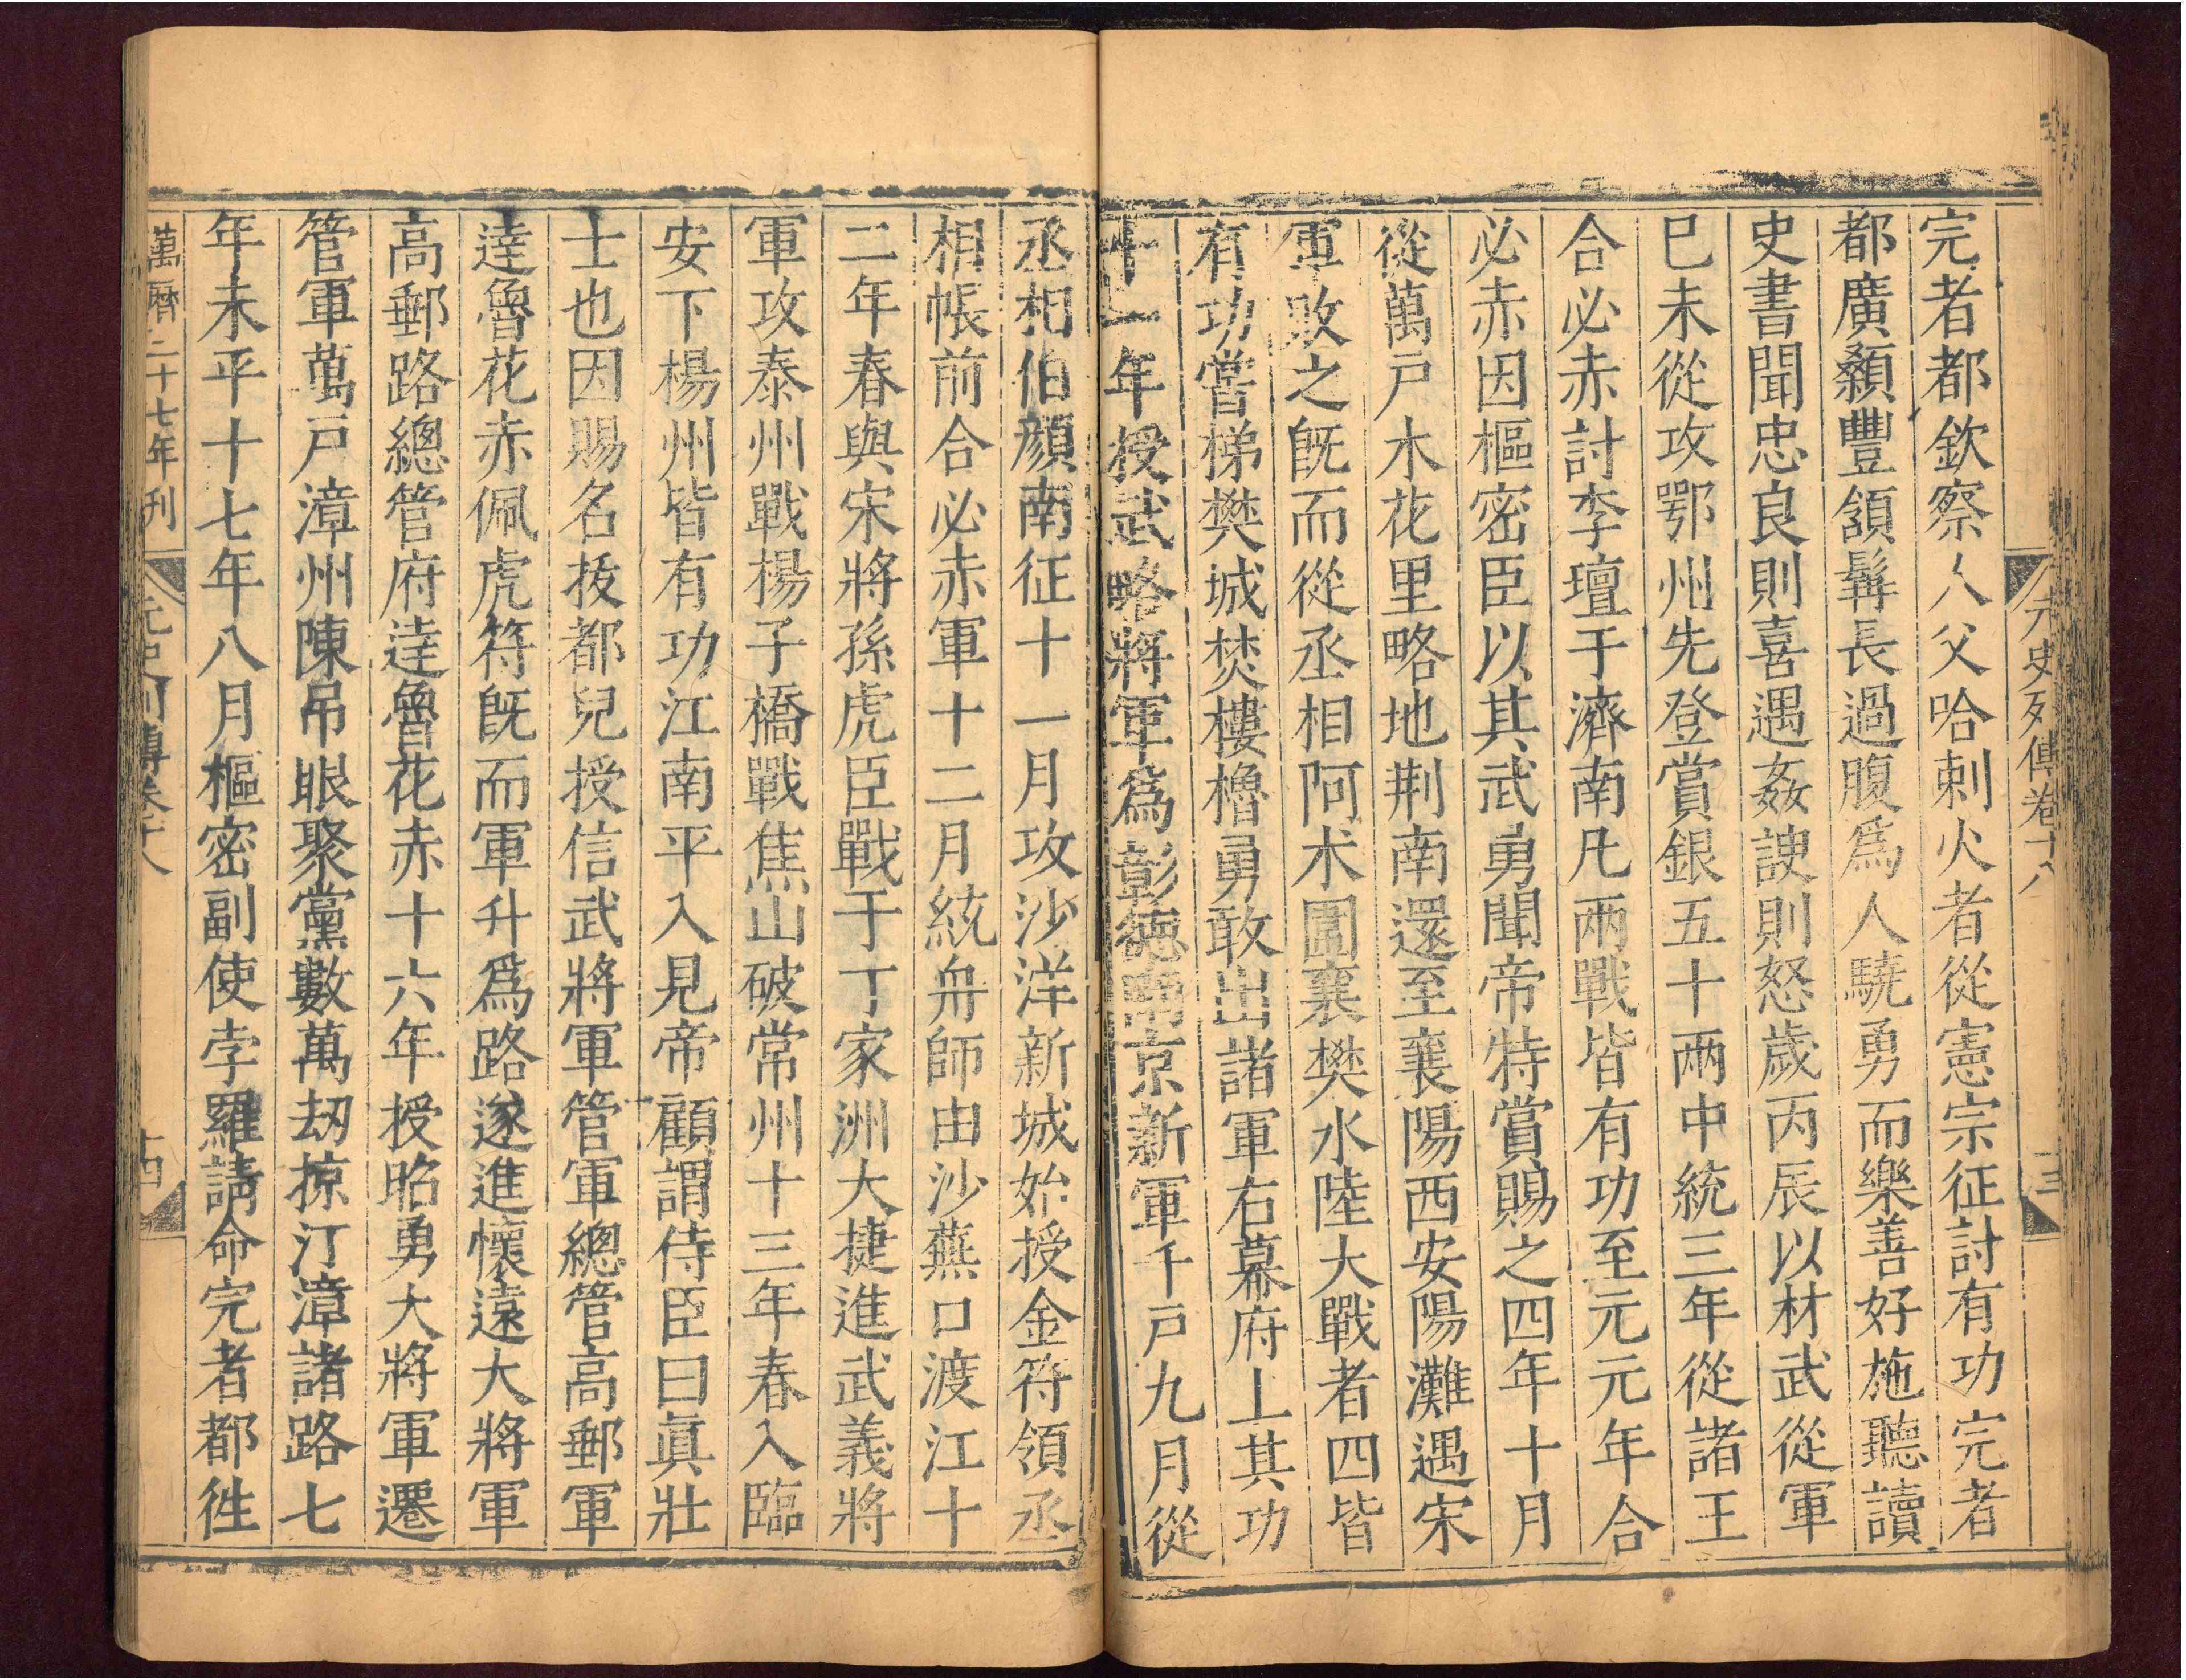 元史列傳卷十八
完者都欽察人父哈剌火者從憲宗征討有功完者
都廣顙豐頷髯長過腹爲人驍勇而樂善好施聽讀
史書聞忠良則喜遇姦諛則怒歲丙辰以材武從軍
巳未從攻鄂州先登賞銀五十兩中統三年從諸王
合必赤討李璮于濟南凡兩戰皆有功至元元年合
必赤因樞密臣以其武勇聞帝特賞賜之四年十月
從萬戸木花里略地荆南還至襄陽西安陽灘遇宋
軍敗之旣而從丞相阿术圍襄樊水陸大戰者四皆
有功嘗梯樊城焚樓櫓勇敢出諸軍右幕府上其功
十一年授武略將軍爲彰德南京新軍千戸九月從
丞相伯顔南征十一月攻沙洋新城始授金符領丞
相帳前合必赤軍十二月統舟師由沙蕪口渡江十
二年春與宋將孫虎臣戰于丁家洲大捷進武義將
軍攻泰州戰楊子橋戰焦山破常州十三年春入臨
安下楊州皆有功江南平入見帝顧謂侍臣曰眞壯
士也因賜名拔都兒授信武將軍管軍總管高郵軍
達魯花赤佩虎符旣而軍升爲路遂進懷遠大將軍
高郵路總管府達魯花赤十六年授昭勇大將軍遷
管軍萬戸漳州陳吊眼聚黨數萬刼掠汀漳諸路七
年未平十七年八月樞密副使孛羅請命完者都徃
萬曆二十七年刊
元史列傳卷十八
十四